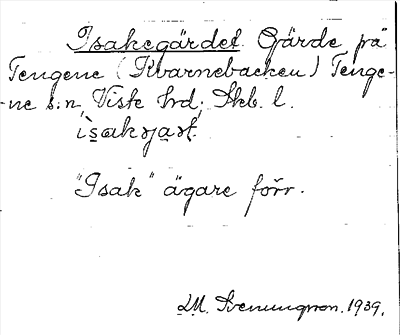 Isakegärdet. Gärde på
Tengene (Kvarnebacken) Tenge-
-ne s:n, Viste hd. Skb. l.
"Isak" ägare förr.
LM. Svenungson. 1939.